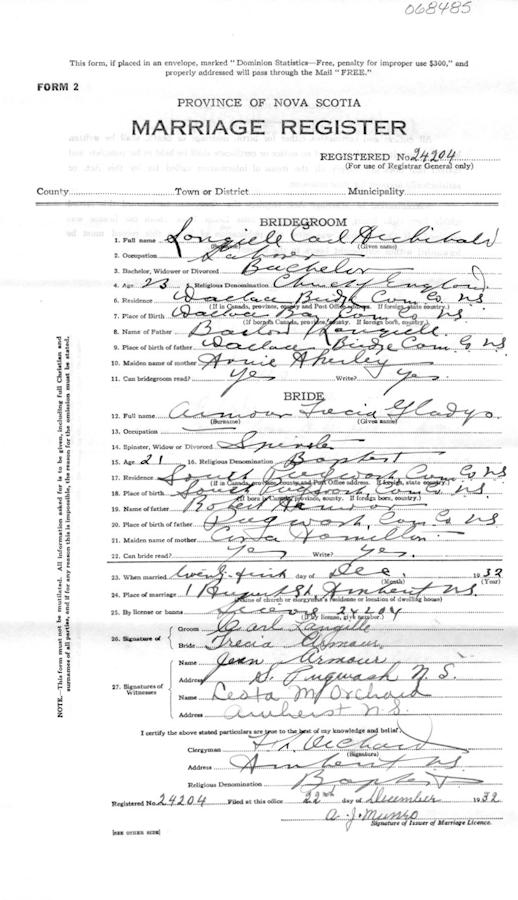 068485
This form, if placed in an envelope, marked "Dominion Statistics—Free, penalty for improper use $300," and
properly addressed will pass through the Mail "FREE."
FORM 2
PROVINCE OF NOVA SCOTIA
MARRIAGE REGISTER
REGISTERED No. 24204
(For use of Registrar General only)
County Town or District Municipality
BRIDEGROOM
1. Full name Langille Carl Archibald
(Surname) (Given name)
2. Occupation Laborer
3. Bachelor, Widower or Divorced Bachelor
4. Age 23 5. Religious Denomination Church of England
6. Residence Wallace Bridge Cum. Co. NS
(If in Canada, province, county and Post Office address. If foreign, state country.)
7. Place of Birth Wallace Bay Cum. Co. NS
(If born in Canada, province, county. If foreign born, country.)
8. Name of Father Langille
9. Place of birth of father Wallace Bridge Cum. Co. NS
10. Maiden name of mother Annie
11. Can bridegroom read? Yes Write? Yes.
BRIDE
12. Full name Armour Gladys.
(Surname) (Given name)
13. Occupation
14. Spinster, Widow or Divorced Spinster
15. Age 21 16. Religious Denomination Baptist
17. Residence South Pugwash Cum. Co. NS
(If in Canada, province, county and Post Office address. If foreign, state country.)
18. Place of birth South Pugwash Cum. Co. NS.
(If born in Canada, province, county. If foreign born, country.)
19. Name of Father Robert Armour
20. Place of birth of father Pugwash, Cum. Co. NS
21. Maiden name of mother Hamilton
22. Can bride read? Yes Write? Yes.
23. When married day of Dec. 1932
(Month) (Year)
24. Place of marriage 1 Rupert St. Amherst NS.
(Name of church or clergyman's residence or location of dwelling house)
25. By license or banns License 24204
(If by license, give number.)
26. Signature of
Groom Carl Langille
Bride Trecia Armour
27. Signatures of Witnesses
Name Jean Armour
Address S. Pugwash N. S.
Name Leota M Orchard
Address Amherst N. S.
I certify the above stated particulars are true to the best of my knowledge and belief.
Clergyman Orchard
(Signature)
Address Amherst NS
Religious Denomination Baptist
Registered No. 24204 Filed at this office 22nd day of December 1932
A. J. Munro
Signature of Issuer of Marriage Licence.
[SEE OTHER SIDE]
NOTE.—This form must not be mutilated. All information asked for is to be given, including full Christian and
surnames of all parties, and if for any reason this is impossible, the reason for the omission must be stated.